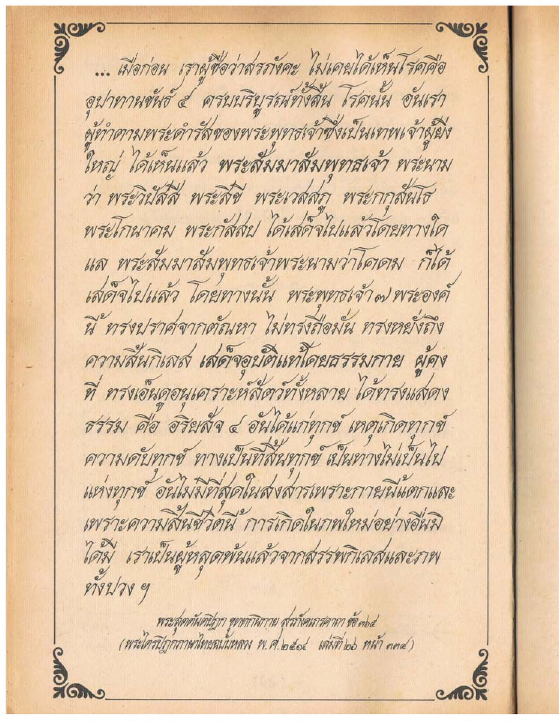 ... เมื่อก่อน เราผู้ชื่อว่าสรภังคะ ไม่เคยได้เห็นโรคคือ
อุปาทานขันธ์ ๕ ครบบริบูรณ์ทั้งสิ้น โรคนั้น อันเรา
ผู้ทำตามพระดำรัสของพระพุทธเจ้าซึ่งเป็นเทพเจ้าผู้ยิ่ง
ใหญ่ ได้เห็นแล้ว พระสัมมาสัมพุทธเจ้า พระนาม
ว่า พระวิปัสสี พระสิขี พระเวสสภู พระกกุสันโธ
พระโกนาคม พระกัสสป ได้เสด็จไปแล้วโดยทางใด
แล พระสัมมาสัมพุทธเจ้าพระนามว่าโคดม ก็ได้
เสด็จไปแล้ว โดยทางนั้น พระพุทธเจ้า ๗ พระองค์
นี้ ทรงปราศจากตัณหา ไม่ทรงถือมั่น ทรงหยั่งถึง
ความสิ้นกิเลส เสด็จอุบัติแท้โดยธรรมกาย ผู้คง
ที่ ทรงเอ็นดูอนุเคราะห์สัตว์ทั้งหลาย ได้ทรงแสดง
ธรรม คือ อริยสัจ ๔ อันได้แก่ทุกข์ เหตุเกิดทุกข์
ความดับทุกข์ ทางเป็นที่สิ้นทุกข์ เป็นทางไม่เป็นไป
แห่งทุกข์ อันไม่มีที่สุดในสงสารเพราะกายนี้แตกและ
เพราะความสิ้นชีวิตนี้ การเกิดในภพใหม่อย่างอื่นมิ
ได้มี เราเป็นผู้หลุดพ้นแล้วจากสรรพกิเลสและภพ
ทั้งปวง ฯ
พระสุตตันตปิฎก ขุททกนิกาย สรภังคเถรคาถา ข้อ ๓๖๕
(พระไตรปิฎกภาษาไทยฉบับหลวง พ.ศ. ๒๕๑๔ เล่มที่ ๒๖ หน้า ๓๓๔)